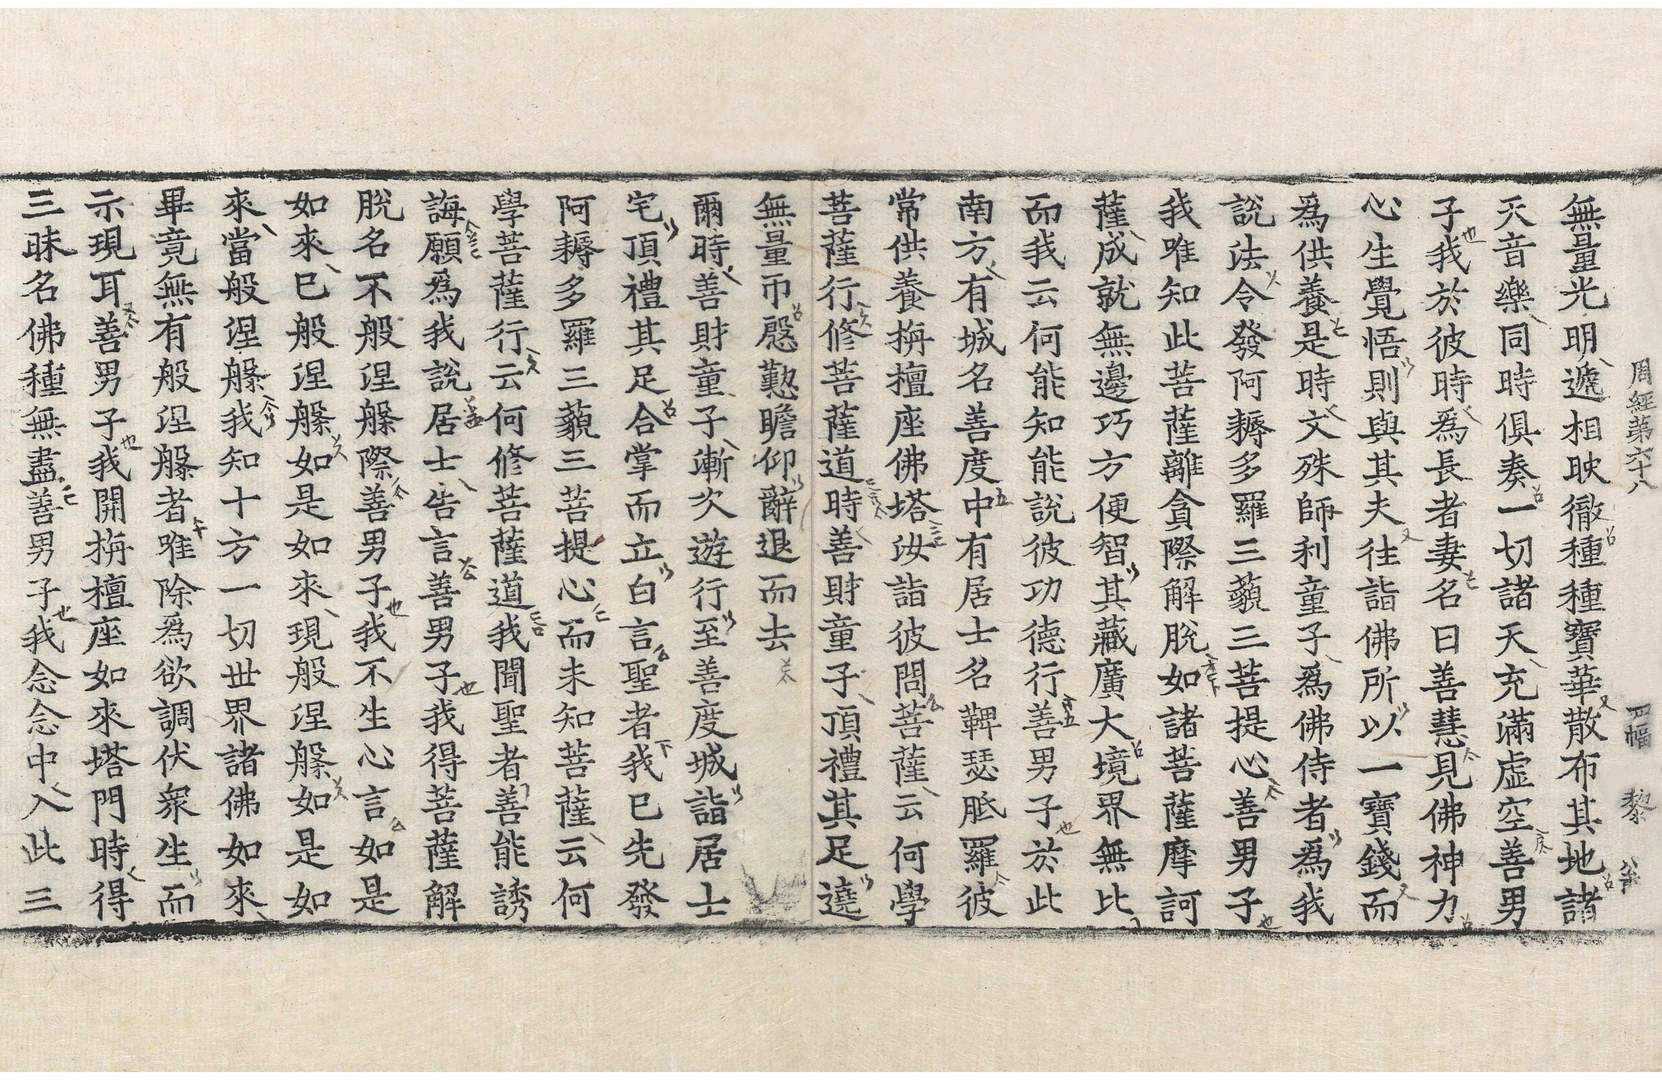 周經第六十八 四幅 黎
無量光明遞相映徹種種寶華散布其地諸
天音樂同時俱奏一切諸天充滿虛空善男
子我於彼時爲長者妻名曰善慧見佛神力
心生覺悟則與其夫往詣佛所以一寶錢而
爲供養是時文殊師利童子爲佛侍者爲我
說法令發阿耨多羅三藐三菩提心善男子
我唯知此菩薩離貪際解脫如諸菩薩摩訶
薩成就無邊巧方便智其藏廣大境界無比
而我云何能知能說彼功德行善男子於此
南方有城名善度中有居士名鞞瑟胝羅彼
常供養栴檀座佛塔汝詣彼問菩薩云何學
菩薩行修菩薩道時善財童子頂禮其足遶
無量帀慇懃瞻仰辭退而去
爾時善財童子漸次遊行至善度城詣居士
宅頂禮其足合掌而立白言聖者我已先發
阿耨多羅三藐三菩提心而未知菩薩云何
學菩薩行云何修菩薩道我聞聖者善能誘
誨願爲我說居士告言善男子我得菩薩解
脫名不般涅槃際善男子我不生心言如是
如來已般涅槃如是如來現般涅槃如是如
來當般涅槃我知十方一切世界諸佛如來
畢竟無有般涅槃者唯除爲欲調伏衆生而
示現耳善男子我開栴檀座如來塔門時得
三昧名佛種無盡善男子我念念中入此三